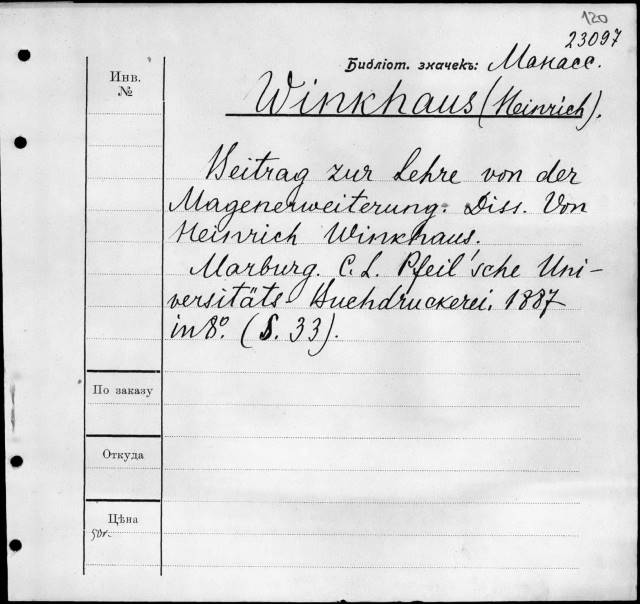 120
23097
Библіот. значекъ: Манасс.
Инв.
№
Winkhaus (Heinrich).
Beitrag zur Lehre von der
Magenerweiterung. Diss. Von
Heinrich Winkhaus.
Marburg. C. L. Pfeil'sche Uni-
versitäts Buchdruckerei. 1887
in 8º. (S. 33).
По заказу
Откуда
Цѣна